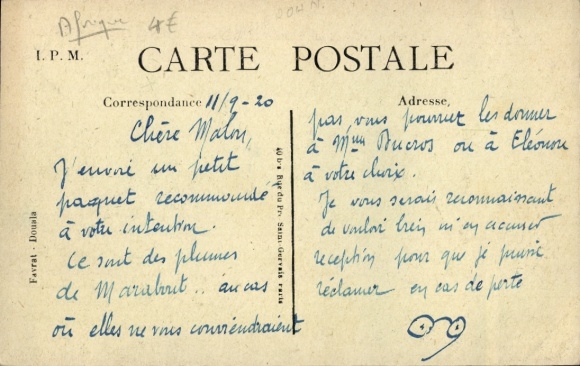 Afrique 4€
I.P.M. CARTE POSTALE
Correspondance 11/9-20
Chère Malou,
J'envoie un petit
paquet recommandé
à votre intention.
Ce sont des plumes
de Marabout.. au cas
où elles ne vous conviendraient
Favrat - Douala
Adresse,
pas, vous pourriez les donner
à Mme Bucros ou à Eléonore
à votre choix.
Je vous serais reconnaissant
de vouloir bien m'en accuser
reception pour que je puisse
réclamer en cas de perte